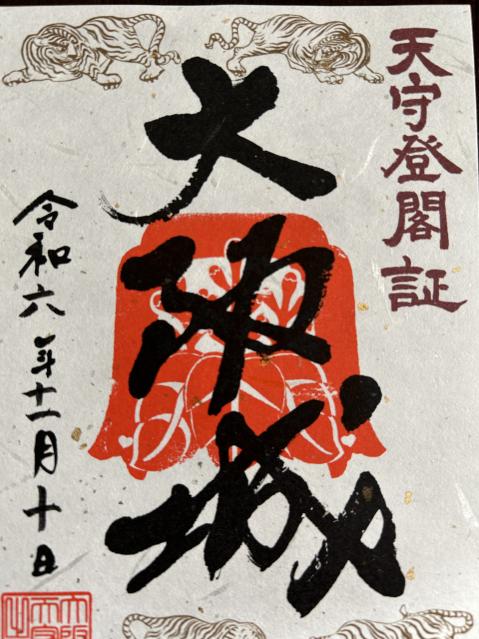 天守登閣証
大阪城
令和六年十一月十日